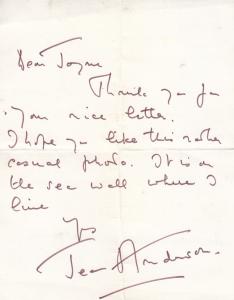 Dear Joyne
Thank you for
your nice letter.
I hope you like this rather
casual photo. It is on
the sea wall where I
live
Yrs
Jean Anderson.